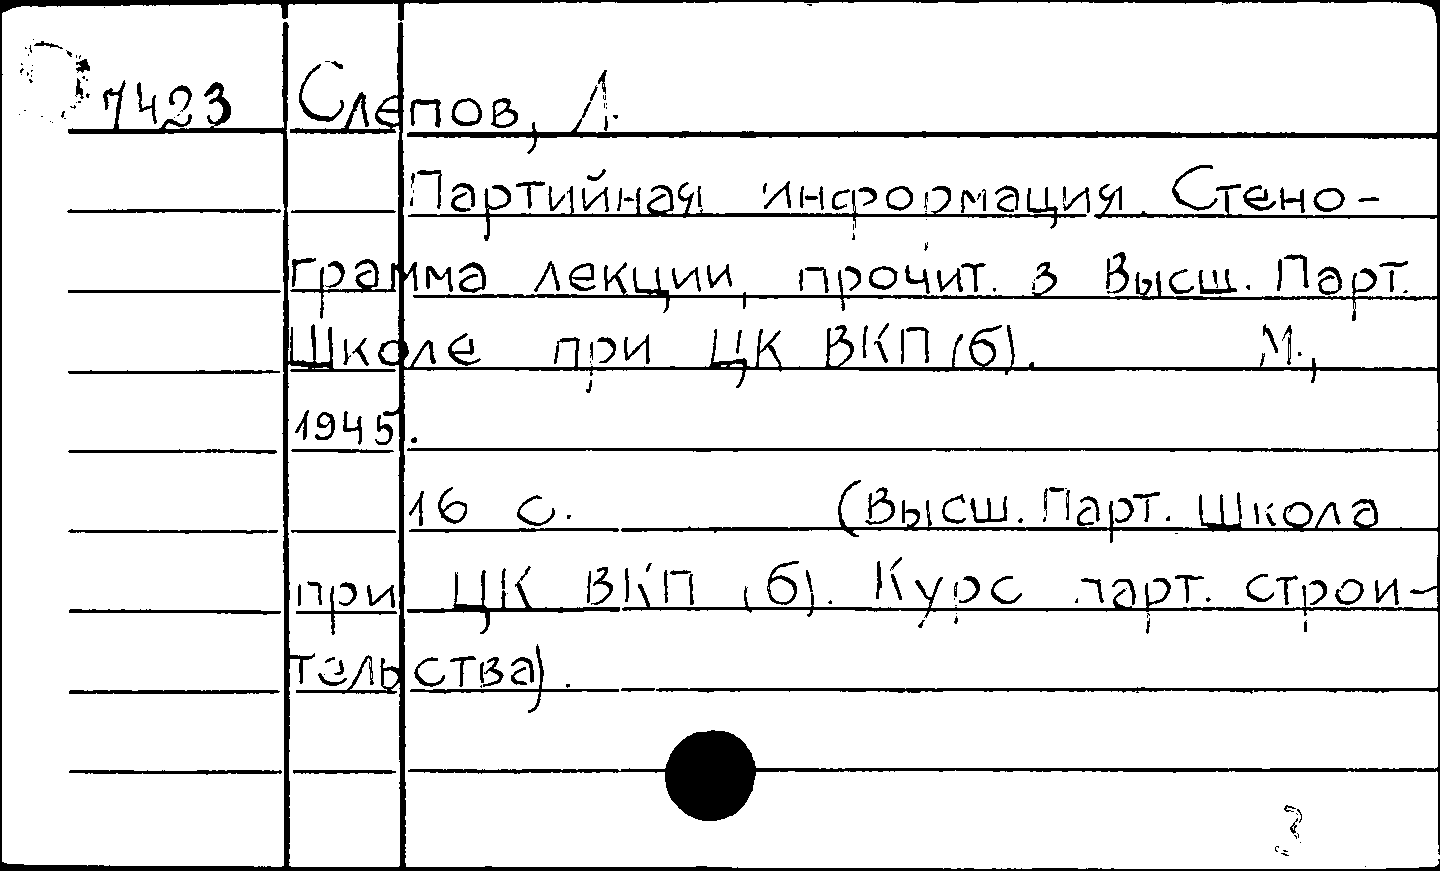 7423 Слепов, Л.
Партийная информация. Стено-
грамма лекции, прочит. в Высш. Парт.
Школе при ЦК ВКП(б). М.,
1945.
16 с. (Высш. Парт. Школа
при ЦК ВКП (б). Курс парт. строи-
тельства).